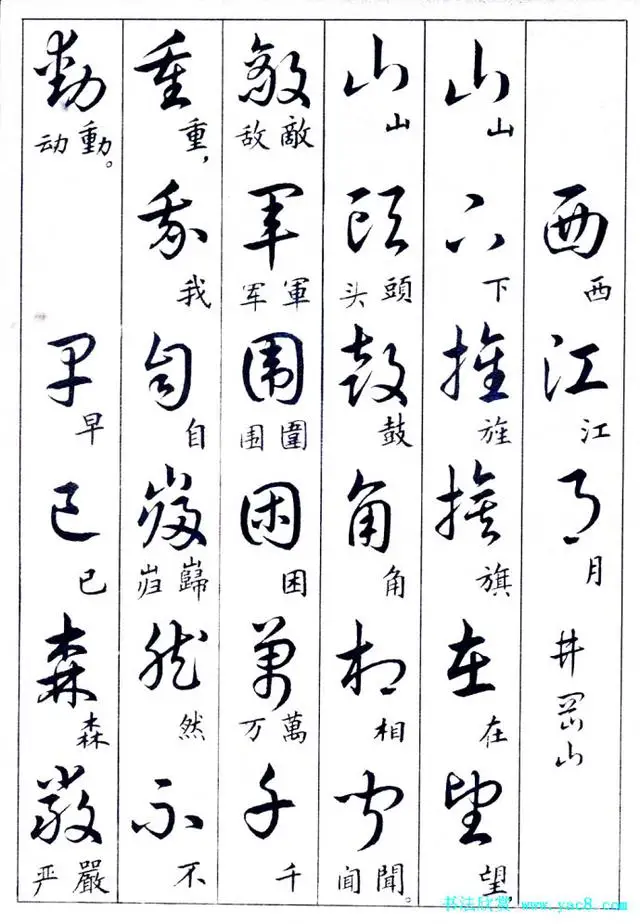 西西江江月月井岡山
山山下下旌旌旗旗在在望望，
山山頭头頭鼓鼓角角相相聞闻聞。
敵敌敵軍军軍围围圍困困萬万萬千千
重重，我我自自巋岿巋然然不不
動动動。早早已已森森嚴严嚴
书法欣赏 www.yac8.com